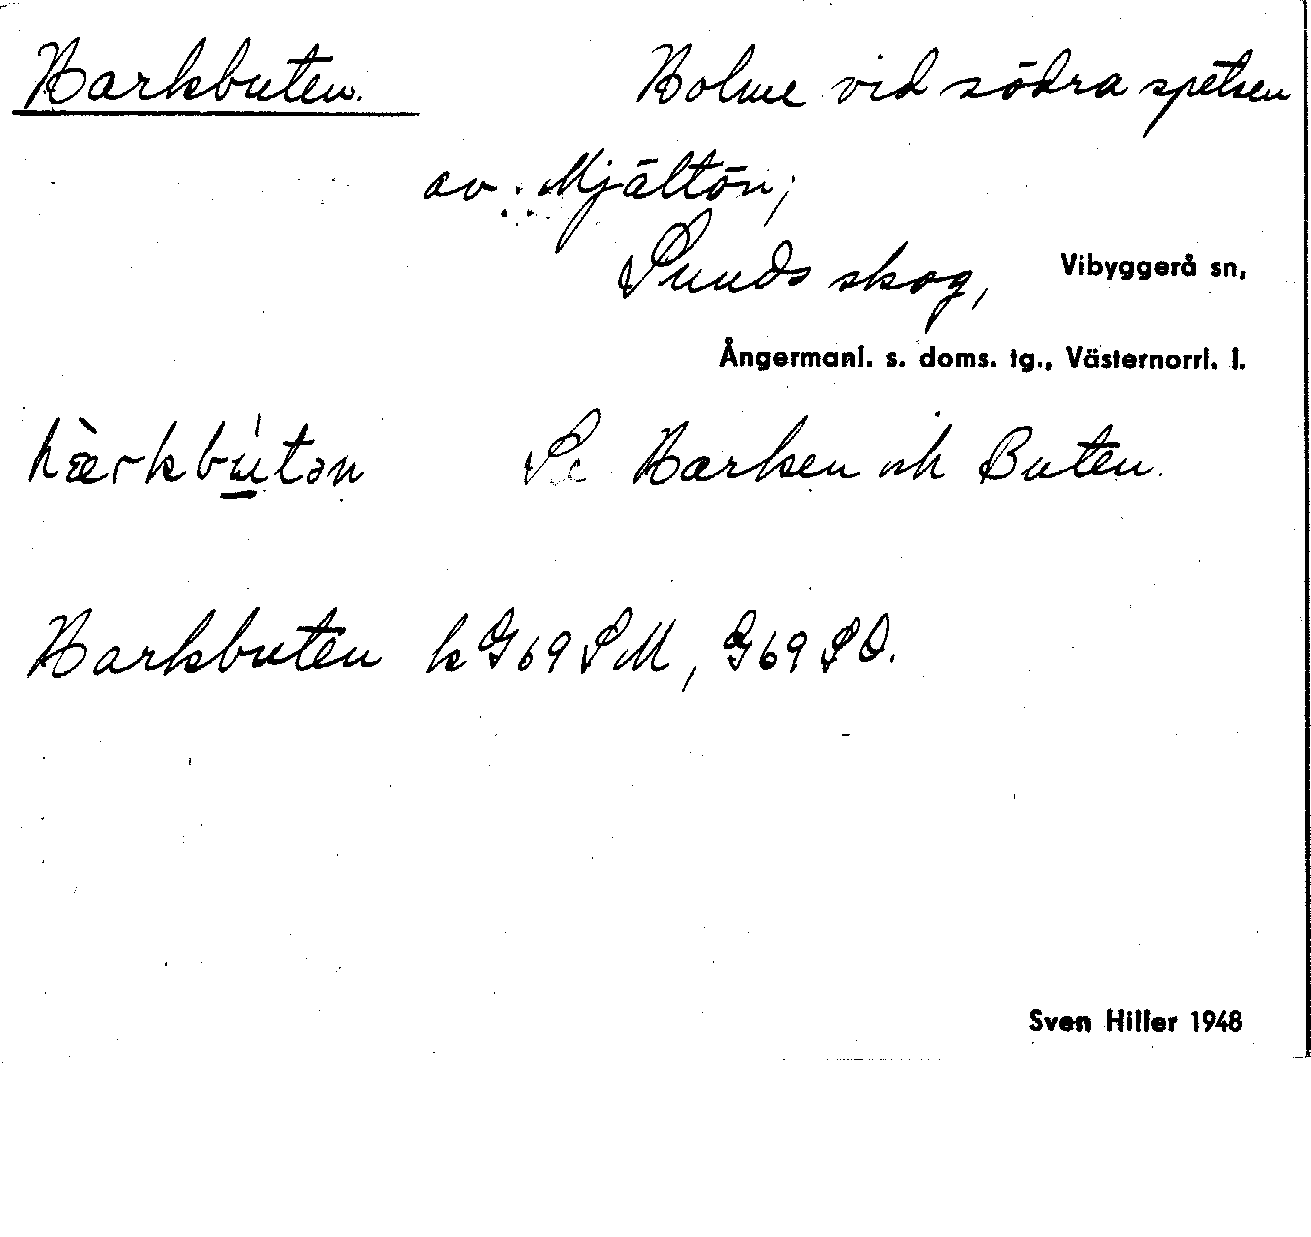 Harkbuten. Holme vid södra spetsen
av Mjältön,
Sunds skog, Vibyggerå sn,
Ångermanl. s. doms. tg., Västernorrl. l.
hàrkbú̱tən Se Harken och Buten.
Harkbuten k G 69 SM, G 69 SO.
Sven Hiller 1948